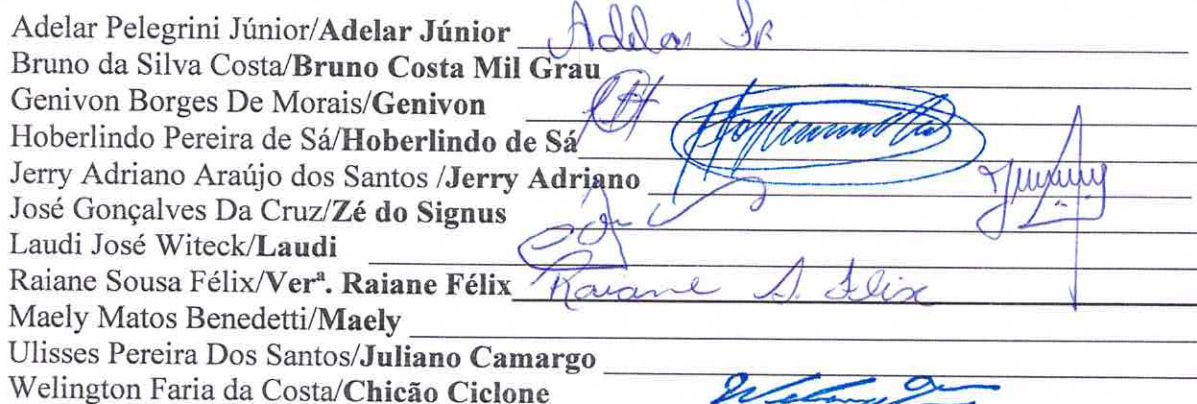 Adelar Pelegrini Júnior/Adelar Júnior Adelar Jr
Bruno da Silva Costa/Bruno Costa Mil Grau
Genivon Borges De Morais/Genivon
Hoberlindo Pereira de Sá/Hoberlindo de Sá
Jerry Adriano Araújo dos Santos /Jerry Adriano
José Gonçalves Da Cruz/Zé do Signus
Laudi José Witeck/Laudi
Raiane Sousa Félix/Verª. Raiane Félix Raiane S. Felix
Maely Matos Benedetti/Maely
Ulisses Pereira Dos Santos/Juliano Camargo
Welington Faria da Costa/Chicão Ciclone